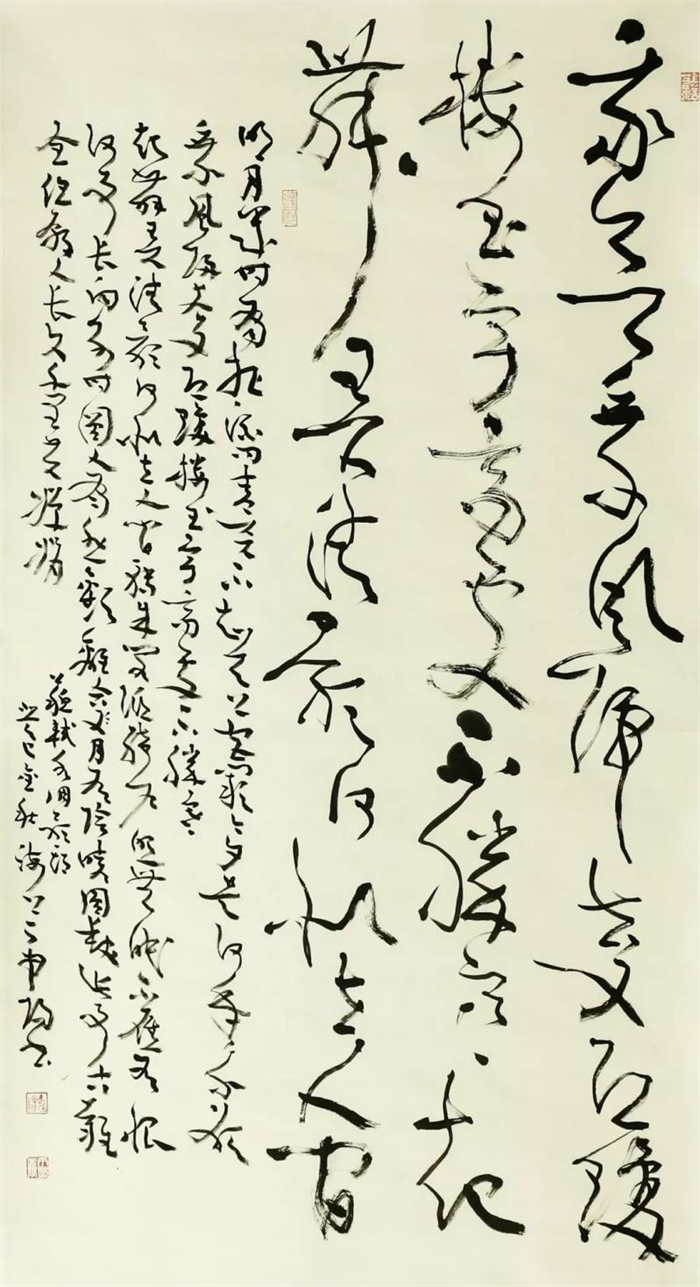 我欲乘風歸去又恐瓊
樓玉宇高處不勝寒起
舞弄清影何似在人間
明月幾時有把酒問青天不知天上宮闕今夕是何年我欲
乘風歸去又恐瓊樓玉宇高處不勝寒
起舞弄清影何似在人間轉朱閣低綺戶照無眠不應有恨
何事長向別時圓人有悲歡離合月有陰晴圓缺此事古難
全但願人長久千里共嬋娟
蘇軾水調歌頭
癸巳金秋海上書